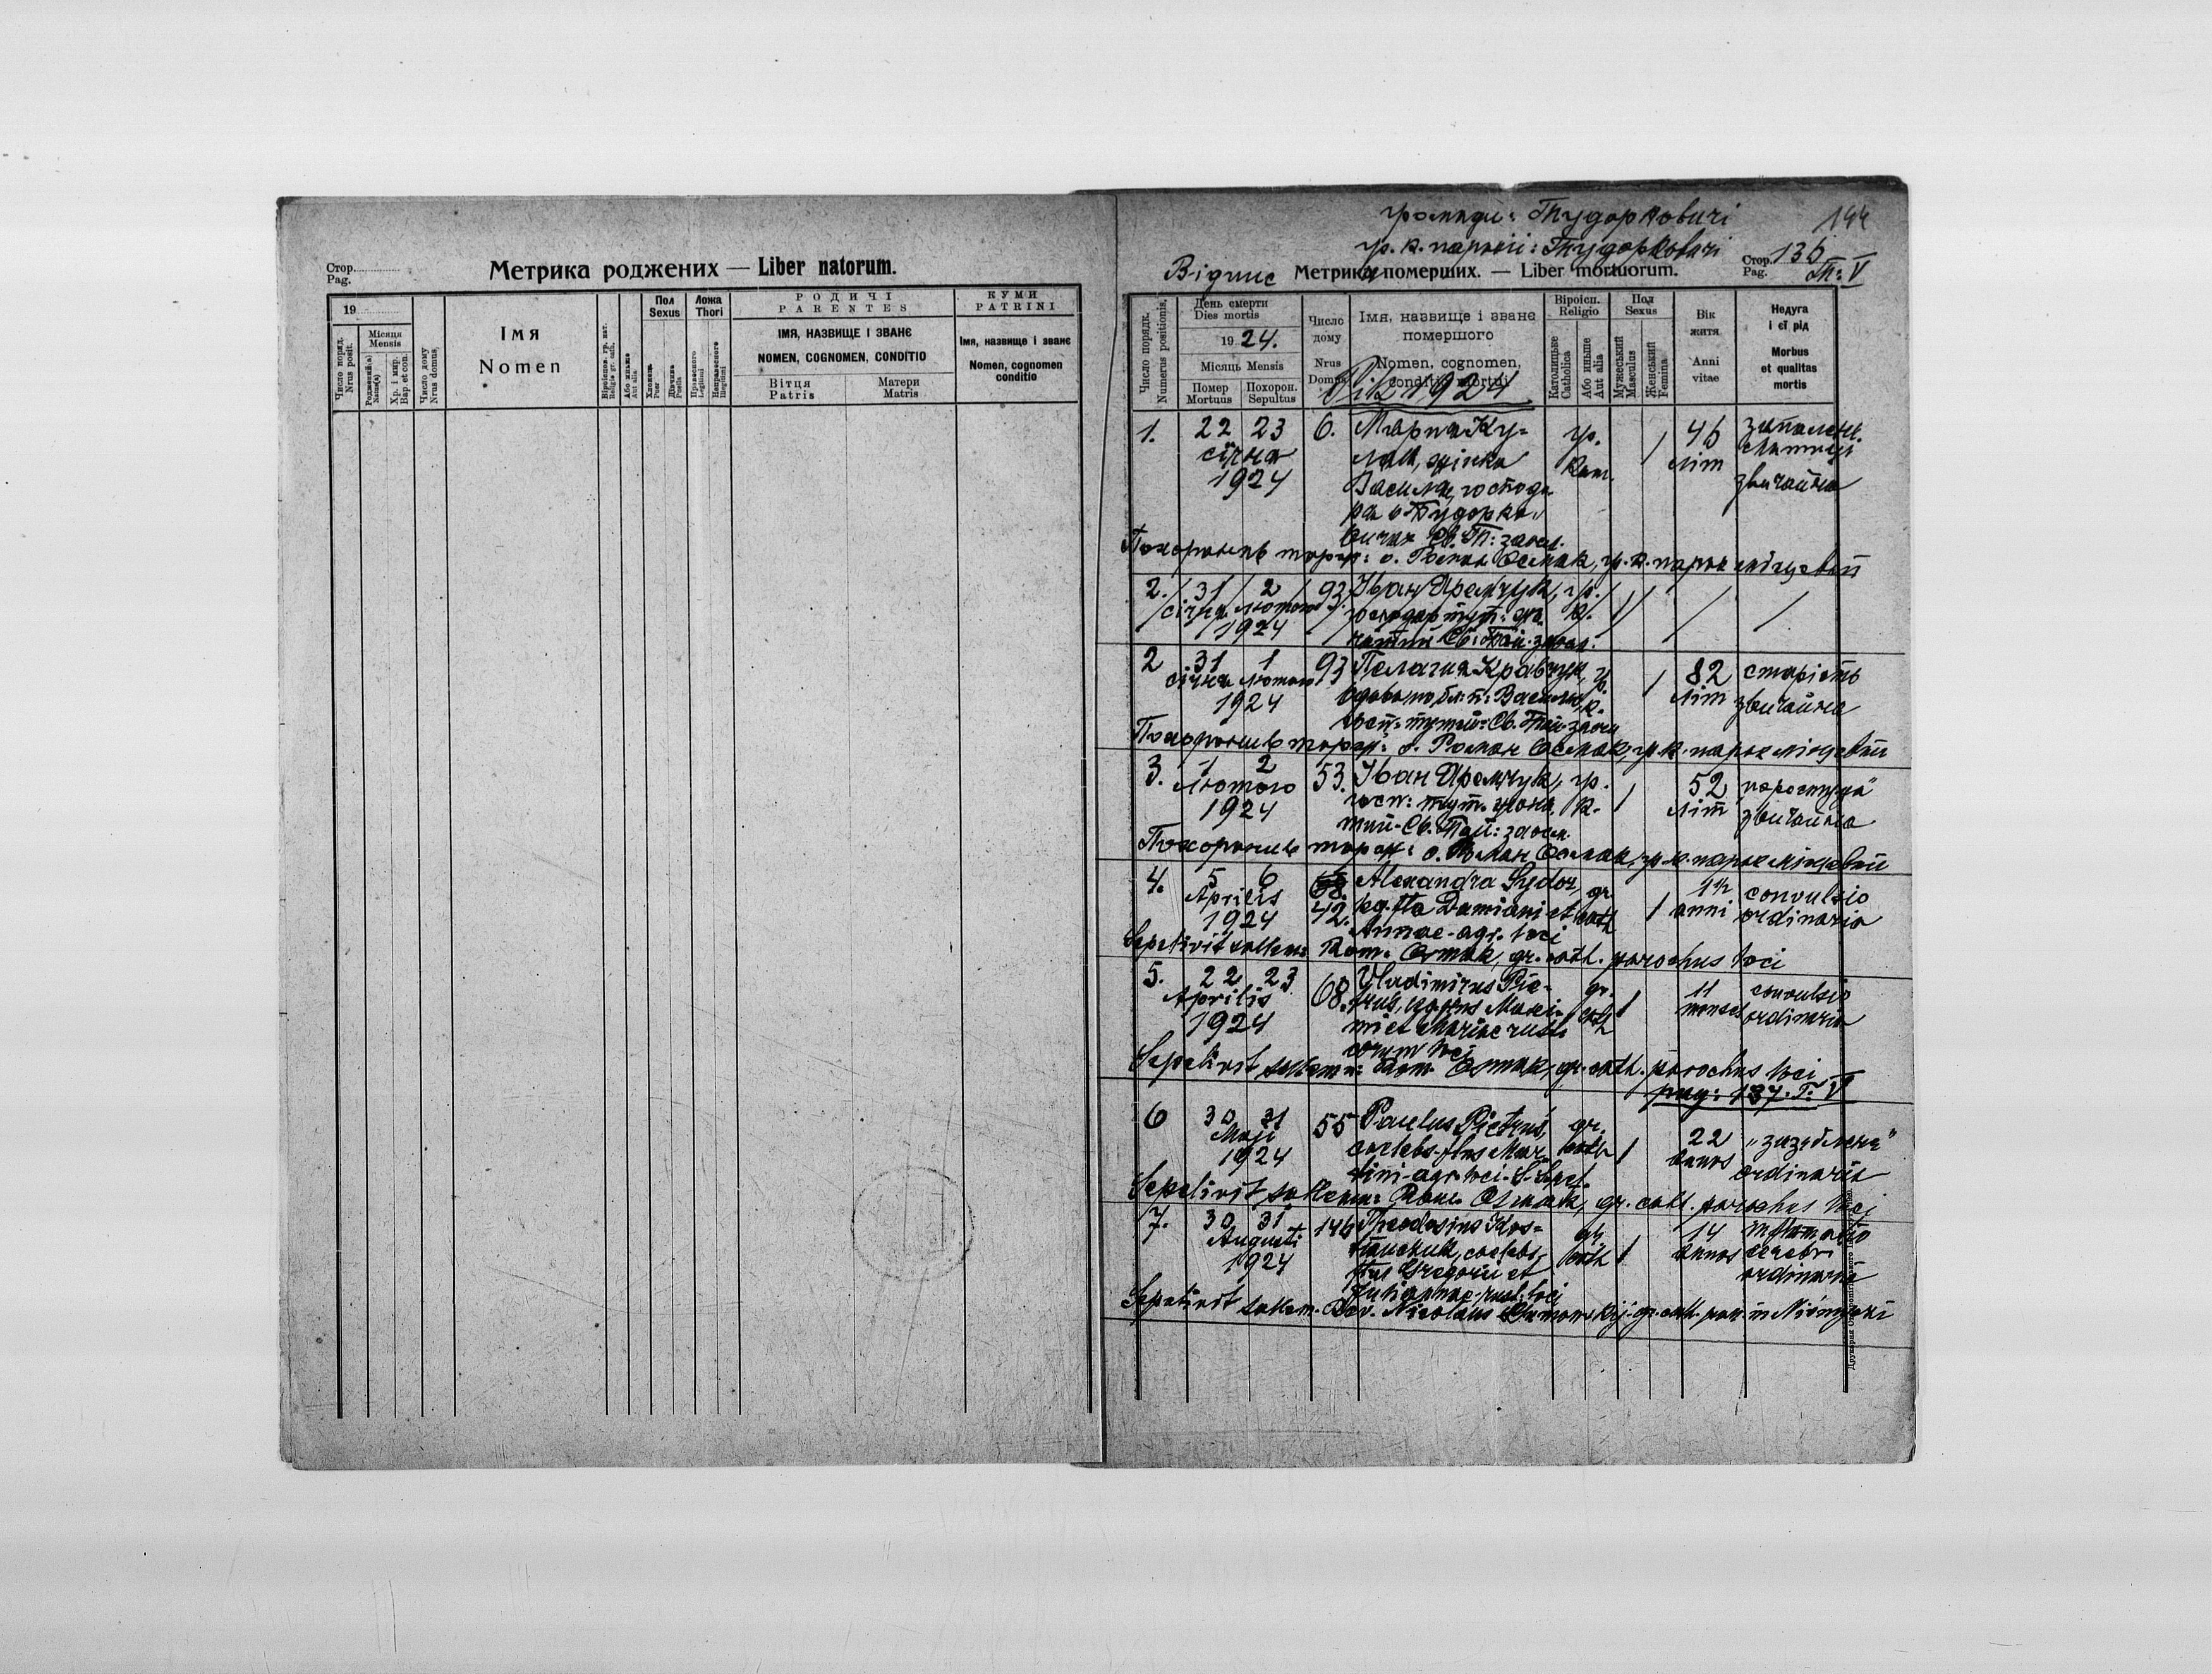 Стор.
Pag.
Метрика роджених — Liber natorum.
19
Число поряд.
Nrus posit.
Місяця
Mensis
Роджений(а)
Natus(a)
Хр. і мир.
Bap. et con.
Число дому
Nrus domus
ІМЯ
Nomen
Віроіспов. гр. кат.
Religio gr. cath.
Або иньше
Aut alia
Пол
Sexus
Хлопець
Puer
Дівчина
Puella
Ложа
Thori
Правесного
Legitimi
Неправесного
Illegitimi
РОДИЧІ
PARENTES
ІМЯ, НАЗВИЩЕ І ЗВАНЄ
NOMEN, COGNOMEN, CONDITIO
Вітця
Patris
Матери
Matris
КУМИ
PATRINI
Імя, назвище і званє
Nomen, cognomen
conditio
громади: Тудорковичі
144
гр. к. парохії: Тудорковичі
Відпис Метрика померших. — Liber mortuorum.
Стор. 136
Pag. Т: V
Число порядк.
Numerus positionis,
День смерти
Dies mortis
1924.
Місяць Mensis
Помер
Mortuus
Похорон.
Sepultus
Число
дому
Nrus
Domus
Імя, назвище і званє
помершого
Nomen, cognomen,
conditio mortui
Рік 1924
Віроісп.
Religio
Католицьке
Catholica
Або иньше
Aut alia
Пол
Sexus
Мужеський
Masculus
Женський
Femina
Вік
житя
Anni
vitae
Недуга
і єї рід
Morbus
et qualitas
mortis
1. 22 23 6. Мария Ку= гр. / 46 запаленє
січня лай, жінка кат. літ
1924 Василя, господа звичайна
ра в Тудорко
вичах Св. Т: заос.
Похоронив торж: о. Роман Осмак, гр. к. парох місцевий
2. 31 2 93 Іван Яремчук, гр.
січня лютого господар тут: к.
1924 Св: Тай. заос.
2 31 1 93 Пелагия Кравчук, гр. / 82 старість
січня лютого вдова по бл: п: Василю к. літ звичайна
1924 госп. Св. Тай. заос
Похоронив торж: о. Роман Осмак, гр. к. парох місцевий
3. 1 2 53. Іван Яремчук, гр. / 52
лютого госп: тут. жона к. літ звичайна
1924 тий. Св. Тай: заос.
Похоронив торж: о. Роман Осмак, гр. к. парох місцевий
4. 5 6 68. Alexandra Sydor, gr. / 1½ convulsio
Aprilis 42. leg. fta Damiani et cath anni ordinaria
1924 Annae agr. loci
Sepelivit sollem: Rom. Osmak, gr. cath. parochus loci
5. 22 23 68. Vladimirus Pie- gr. / 11 convulsio
Aprilis trus, leg. ftus Maxi- cath menses ordinaria
1924 mi et Mariae rusti
corum loci
Sepelivit sollemn: Rom. Osmak, gr. cath. parochus loci
pag: 137. T: V
6 30 31 55 Paulus Pietruś, gr. / 22
Maji caelebs ftus Mar- cath annos ordinaria
1924 tini agr. loci
Sepelivit sollemn: Rom. Osmak, gr. cath. parochus loci
7. 30 31 146 Theodosius Kos= gr. / 14 inflamatio
Augusti tiuczuk, caelebs, cath annos cerebri
1924 ftus Gregorii et ordinaria
Julianna rust. loci
Sepelivit sollem. Rev. Nicolaus gr. cath. par. in